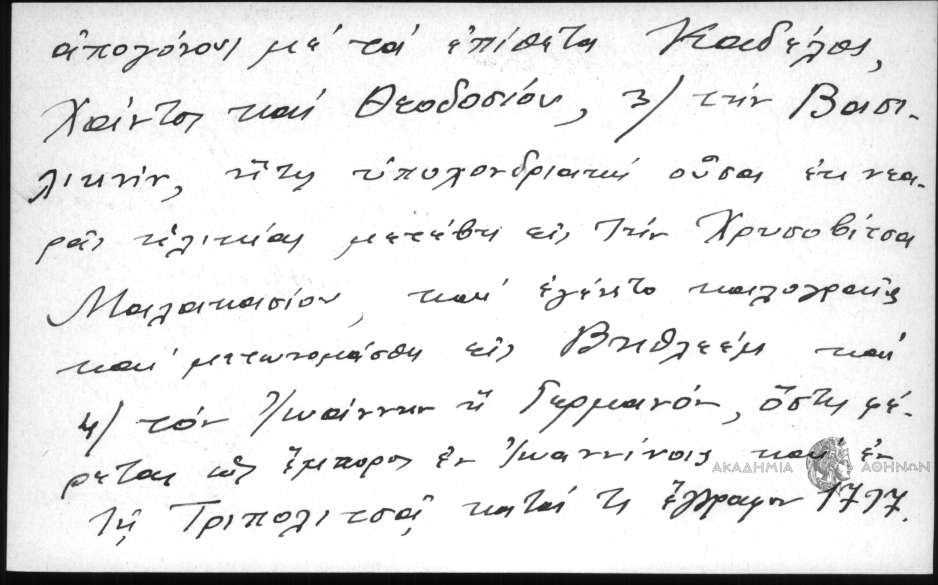 ἀπογόνους μέ τά ἐπίθετα Καδέλος,
Χαίντος καί Θεοδοσίου, 3) τήν Βασι-
λικήν, ἥτις ὑποχονδριακή οὖσα ἐκ νεα-
ρᾶς ἡλικίας μετέβη εἰς τήν Χρυσοβίτσα
Μαλακασίου, καί ἐγένετο καλογραῖα
καί μετωνομάσθη εἰς Βηθλεέμ καί
4) τόν Ἰωάννην ἤ Γερμανόν, ὅστις φέ-
ρεται ὡς ἔμπορος ἐν Ἰωαννίνοις καί ἐν
τῇ Τριπολιτσᾷ κατά τι ἔγγραφον
ΑΚΑΔΗΜΙΑ ΑΘΗΝΩΝ